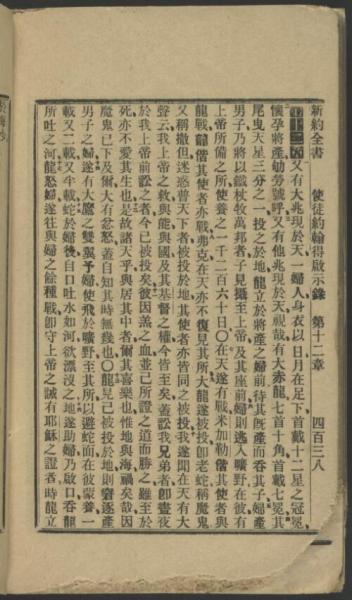 新約全書　使徒約翰得啟示錄　第十二章　四百三八
第十二章　又有大兆現於天一婦人身衣以日月在足下首戴十二星之冠冕
懷孕將產劬勞號呼又有他兆現於天視哉有大赤龍七首十角首戴七冕其
尾曳天星三分之一投之於地龍立於將產之婦前待其旣產而吞其子婦產
男子乃將以鐵杖牧萬邦者子見攝至上帝及其座前婦則逃入曠野在彼有
上帝所備之所使養之一千二百六十日〇在天遂有戰米加勒偕其使者與
龍戰龍偕其使者亦戰弗克在天亦不復見其所大龍遂被投卽老蛇稱魔鬼
又稱撒但迷惑普天下者被投於地其使者亦皆同之被投我遂聞在天有大
聲云我上帝之救與能與國及其基督之權今皆至矣蓋訟我兄弟者卽晝夜
於我上帝前訟之者今已被投矣彼因羔之血並己所證之道而勝之雖至於
死亦不愛其生也是故諸天乎與居其中者爾其喜樂也惟地與海禍矣哉因
魔鬼已下及爾大有忿怒蓋自知其時無幾也〇龍見己被投於地則窘逐產
男子之婦遂有大鷹之雙翼予婦使飛於曠野至其所以避蛇而在彼蒙養一
載又二載又半載蛇於婦後自口吐水如河欲漂沒之地遂助婦乃啟口吞龍
所吐之河龍怒婦遂往與婦之餘種戰卽守上帝之誡有耶穌之證者時龍立